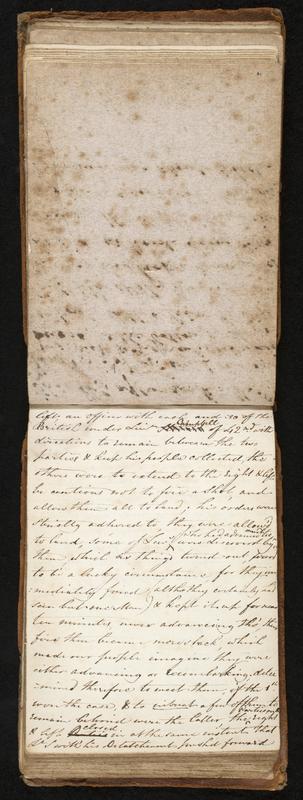 left, an officer with each and 30 of the
British under Lieut Campbell of 42nd with
directions to remain between the two
parties & keep his people collected, the
others were to extend to the right & left
be cautious not to fire a shot, and
allow them all to land; his orders were
strictly adhered to they were allowed
to land, some of
then, which as things turned out proved
to be a lucky circumstance, for they im
mediately fired, altho they certainly had
seen but one or two, & kept it up for near
ten minutes never advancing tho' their
fire then became more slack, which
made our people imagine they were
either advancing or reembarking, deter
mined therefore to meet them, if the 1st
were the case, & to a few of them to
remain behind were the latter, the right
& left closed in at the same instant that
with his Detachment pushed forward